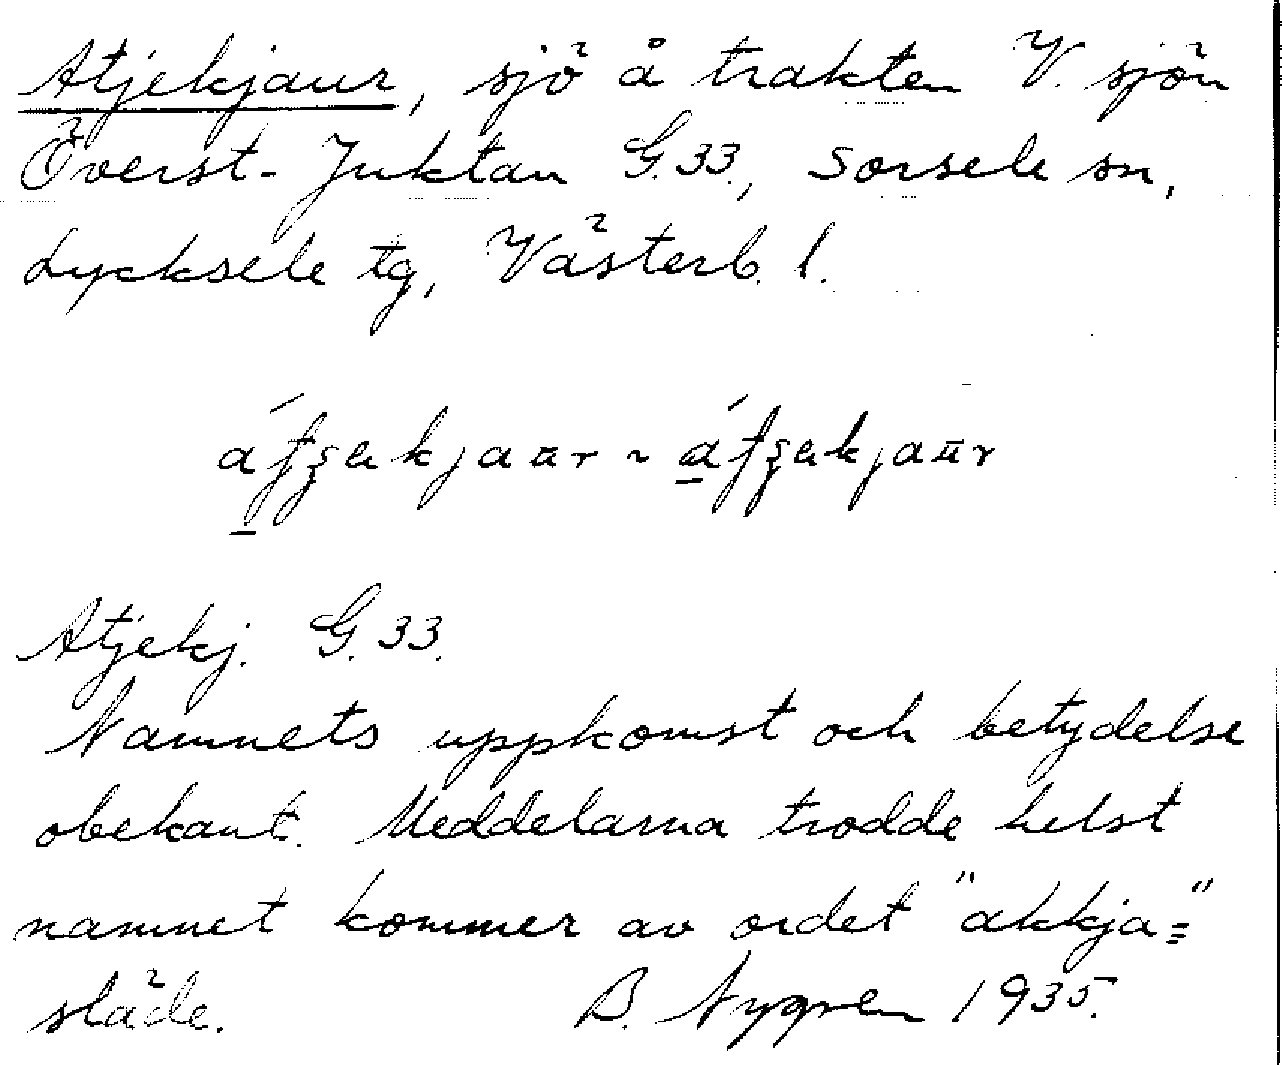 Atjekjaur, sjö å trakten V. sjön
Överst-Juktan G.33., Sorsele sn,
Lycksele tg, Västerb. l.
Atjekj. G.33.
Namnets uppkomst och betydelse
obekant. Meddelarna trodde helst
namnet kommer av ordet "akkja="
släde. B. Nygren 1935.